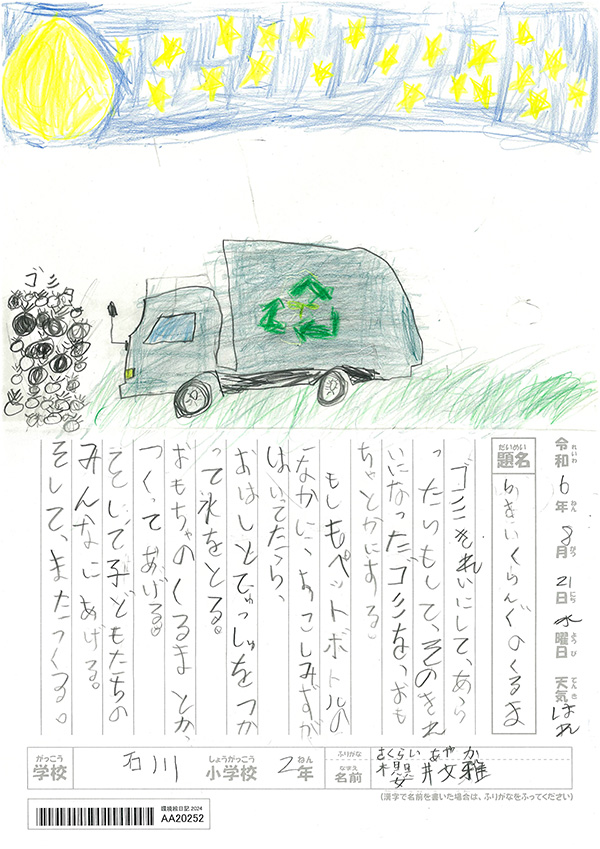 ゴミ
令和6年8月21日水曜日 天気はれ
れいわ ねん がつ にち ようび てんき
だいめい
題名
くらんぐのくるま
ゴミをきれいにして、あら
ったりもして、そのきれ
いになったゴミを、おも
ちゃとかにする。
もしもペットボトルの
なかに、よこしみずが
はいてたら、
おはしとてぃっしゅをつか
って水をとる。
おもちゃのくるまとか、
つくってあげる。
そして子どもたちの
みんなにあげる。
そして、またつくる。
がっこう
学校
石川
しょうがっこう
小学校
2年
ねん
ふりがな
さくらい あやか
なまえ
名前
櫻井文雅
(漢字で名前を書いた場合は、ふりがなをふってください)
環境絵日記 2024
AA20252